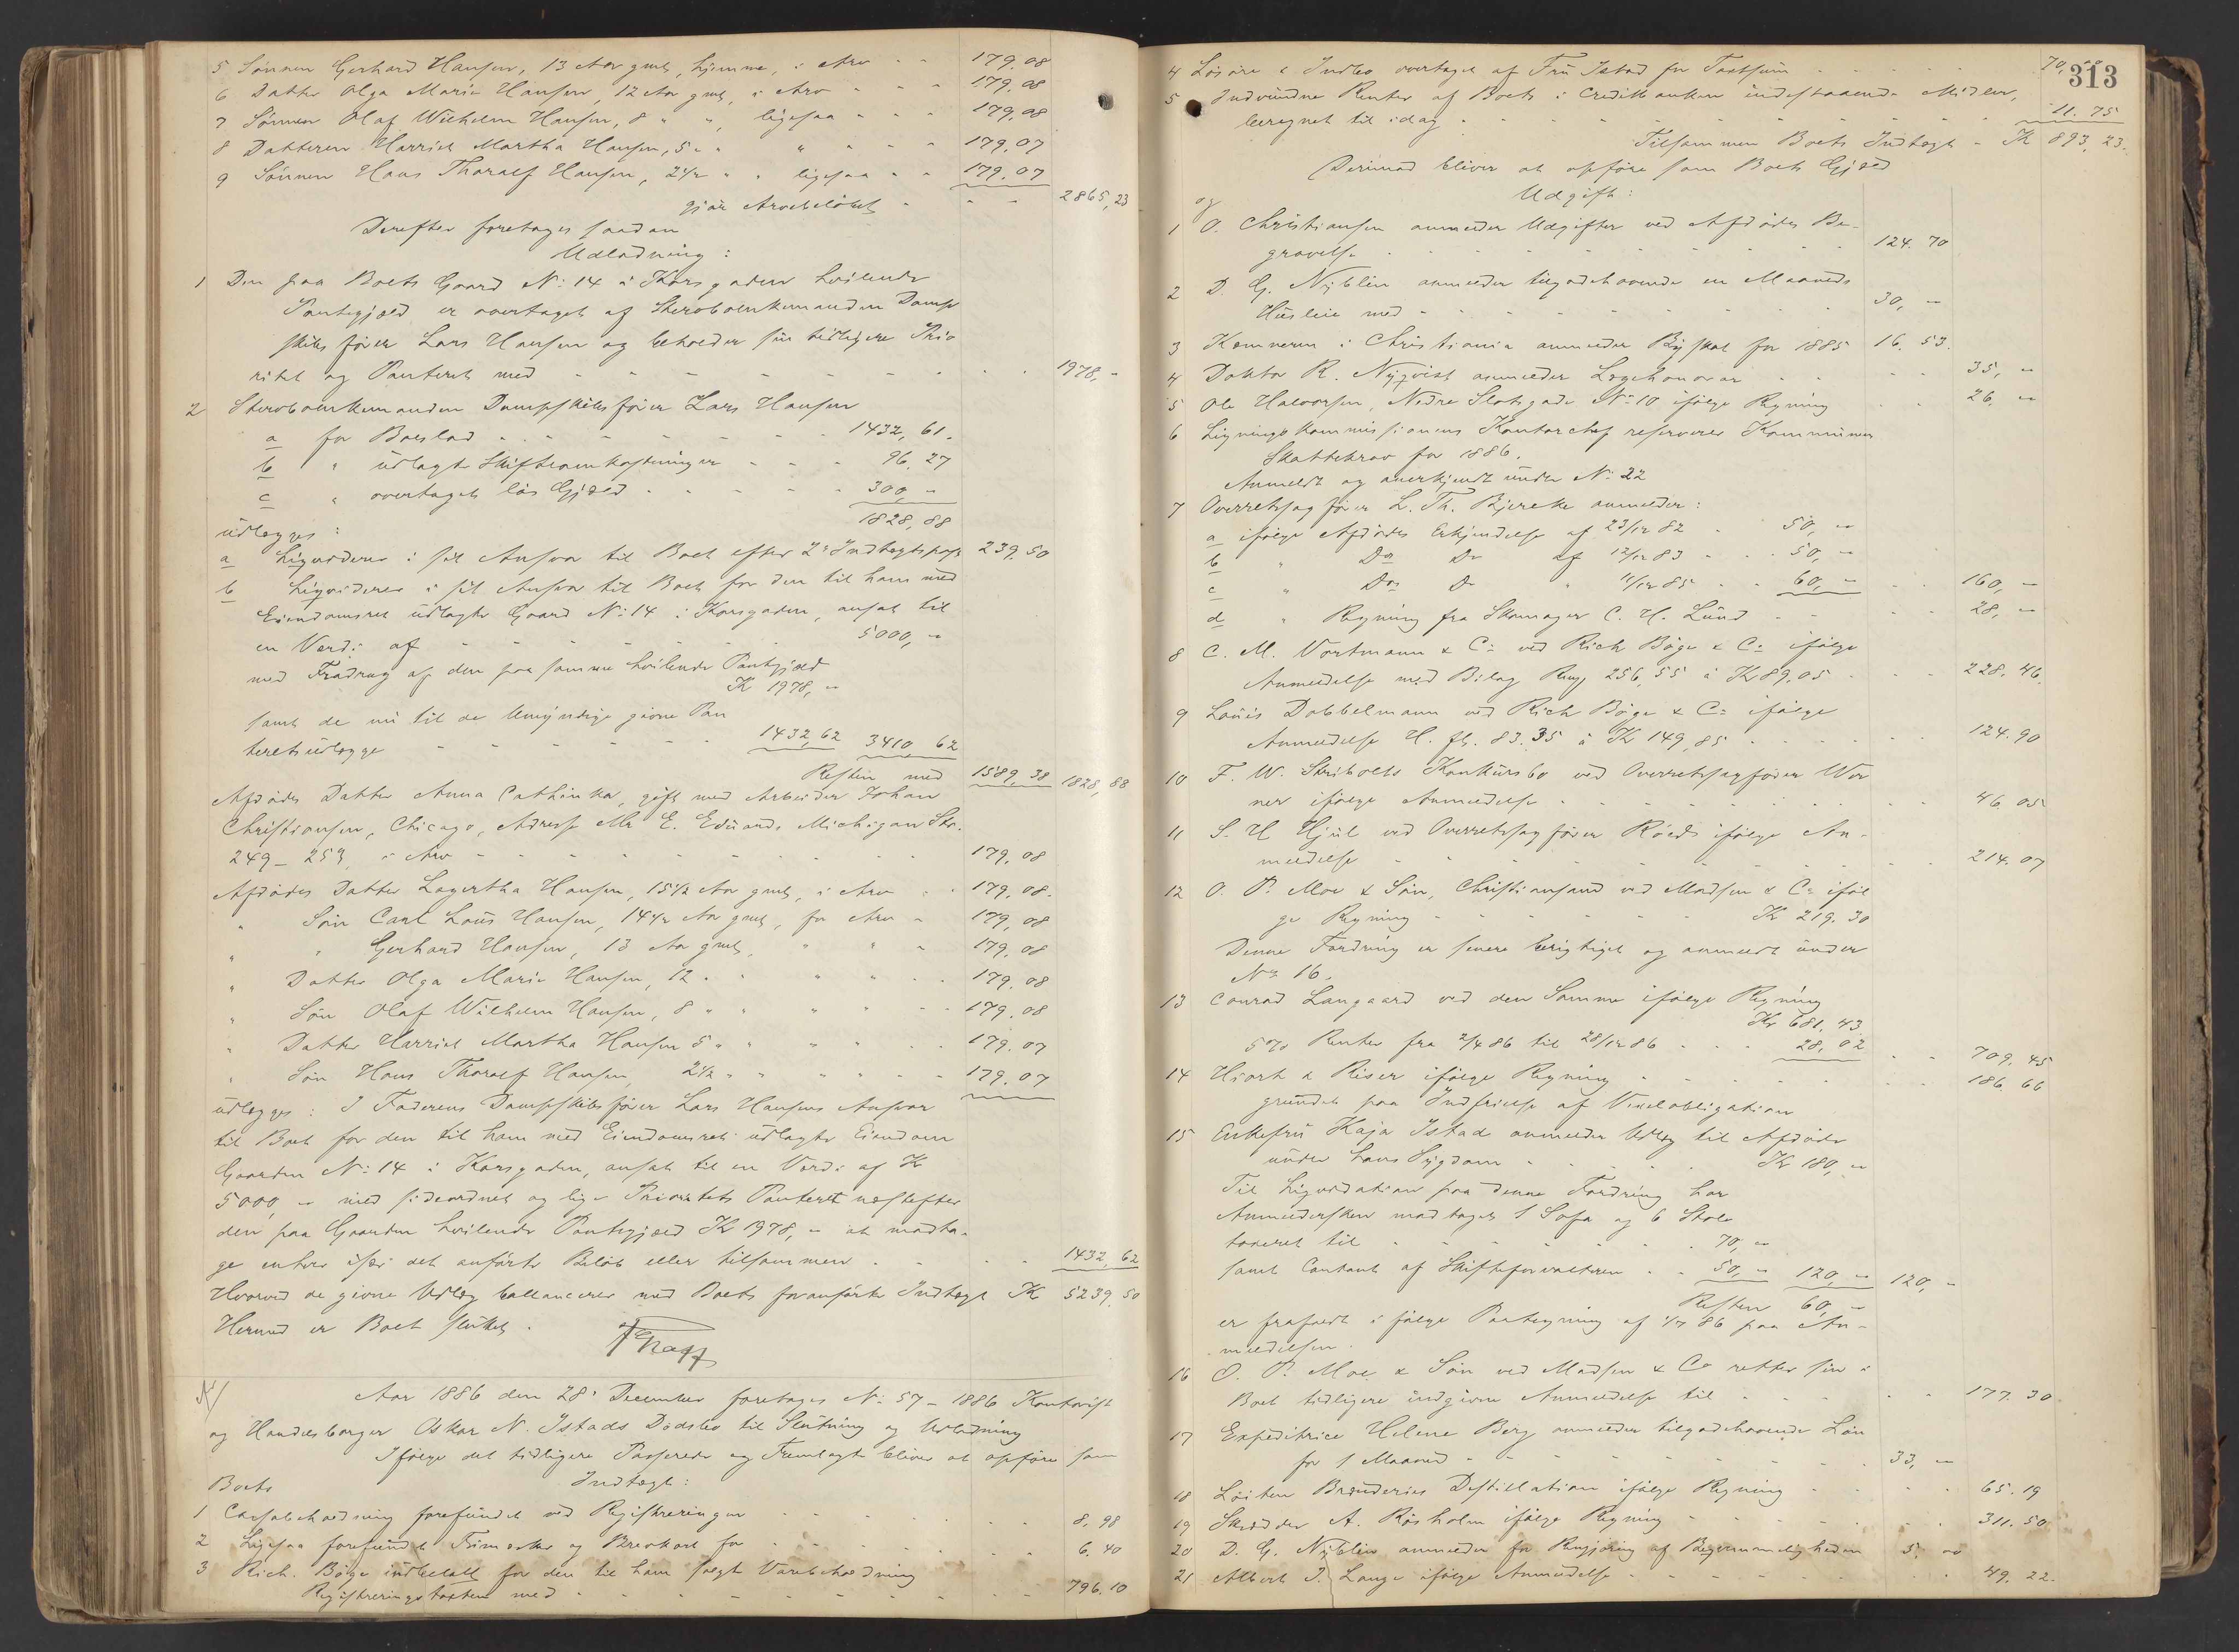 5 Sønnen Gerhard Hansen, 13 Aar gml, hjemme, i Arv - - 179.08
6 Datter Olga Marie Hansen, 12 Aar gml, i Arv - - - 179,08
7 Sønnen Olaf Wilhelm Hansen, 8 " ", ligesaa - - - 179,08
8 Datteren Harriet Martha Hansen, 5 " " " - - - 179.07
9 Sønnen Hans Thoralf Hansen, 2 1/2 " " ligesaa - - 179.07
gjør Arvebeløbet - - - 2865,23
Derefter foretages saadan
Udlodning:
1 Den paa Boets Gaard No: 14 i Korsgaden hvilende
Pantegjæld er overtaget af Stervboenkemanden Damp
skibsfører Lars Hansen og beholder sin tidligere Prio
ritet og Panteret med - - - - - - - 1978, -
2 Stervboenkemanden Dampskibsfører Lars Hansen
a for Boeslod - - - - - - - 1432, 61.
b " udlagte Skifteomkostninger - - - 96. 27
c " overtaget løs Gjæld - - - - 300, -
1828, 88
udlægges:
a Ligvideres i sit Ansvar til Boet efter 2 Indtægtspost 239,50
b Ligvideres i sit Ansvar til Boet for den til ham med
Eiendomsret udlagte Gaard No: 14 i Korsgaden, ansat til
en Værdi af - - - - - - - 5000, -
med Fradrag af den paa samme hvilende Pantgjæld
Kr 1978, -
samt de nu til de Umyndige givne Pan
teretsudlægge - - - - - - 1432,62 3410 62
Resten med 1589,38 1828,88
Afdødes Datter Anna Cathinka, gift med Arbeider Johan
Christiansen, Chicago, Adresse Mr E. Eduards Michigan Str.
249 - 253, i Arv - - - - - - - - 179.08
Afdødes Datter Lagertha Hansen, 15 1/2 Aar gml, i Arv - - 179,08.
" Søn Carl Louis Hansen, 14 1/2 Aar gml, for Arv - 179,08
" " Gerhard Hansen, 13 Aar gml, " " - 179,08
" Datter Olga Marie Hansen, 12 " " " " - - 179,08
" Søn Olaf Wilhelm Hansen, 8 " " " " - - 179.08
" Datter Harriet Martha Hansen 5 " " " " - - 179.07
" Søn Hans Thoralf Hansen, 2 1/2 " " " " - - 179.07
udlægges: I Faderens Dampskibsfører Lars Hansens Ansvar
til Boet for den til ham med Eiendomsret udlagte Eiendom
Gaarden No: 14 i Korsgaden, ansat til en Værdi af Kr
5000, - med sideordnet og lige Prioritets Panteret næstefter
den paa Gaarden hvilende Pantegjæld Kr 1978, - at modta-
ge enhver især det anførte Beløb eller tilsammen - - - 1432,62
Hvorved de givne Udlæg ballancerer med Boets foranførte Indtægt Kr 5239,50
Hermed er Boet sluttet.
Aar 1886 den 28' December foretages No: 57 - 1886 Kontorist
og Handelsborger Oskar N. Istads Dødsbo til Slutning og Udlodning
Ifølge det tidligere Passerede og Fremlagte bliver at opføre som
Boets Indtægt:
1 Cassabeholdning forefundet ved Registreringen - - - - 8,98
2 Ligesaa forefundet Frimærker og Brevkort for - - - - 6.40
3 Rich. Bøge indbetalt for den til ham solgte Varebeholdning
Registreringstaxten med - - - - - - - 796.10
313
4 Løsøre & Indbo overtaget af Fru Istad for Taxtsum - - - 70,
5 Indvundne Renter af Boets i Creditbanken indestaaende Midler,
beregnet til idag - - - - - - - - 11.75
Tilsammen Boets Indtægt - Kr 893,23.
Derimod bliver at opføre som Boets Gjæld
og Udgift:
1 O. Christiansen anmelder Udgifter ved Afdødes Be-
gravelse - - - - - - - - 124.70
2 D. G. Nyblin anmelder tilgodehavende en Maaneds
Husleie med - - - - - - - - 30, -
3 Kemneren i Christiania anmelder Byskat for 1885 16.53.
4 Doktor R. Nyqvist anmelder Lægehonorar - - - - 35, -
5 Ole Halvorsen, Nedre Slotsgade No 10 ifølge Regning - - 26, -
6 Ligningskommissionens Kontorchef reserverer Kommunens
Skattekrav for 1886.
Anmeldt og anerkjendt under No: 22
7 Overretssagfører L. Th. Bjercke anmelder:
a ifølge Afdødes Erkjendelse af 23/12 82 - 50, -
b " Do Do af 12/12 83 - - 50, -
c " Do Do " 11/12 85 - - 60, - - - 160, -
d " Regning fra Skomager C. H. Lund - - - - 28, -
8 C. M. Vortmann & Co ved Rich Bøge & Co ifølge
Anmeldelse med Bilag Rmg 256,55 à Kr 89.05 - - - 228,46.
9 Louis Dobbelmann ved Rich Bøge & Co ifølge
Anmeldelse H. fl. 83.35 à Kr 149,85 - - - - - 124.90
10 F. W. Konkursbo ved Overretssagfører Wer
ner ifølge Anmeldelse - - - - - - - 46.05
11 S. H Hjul ved Overretssagfører Roeds ifølge An-
meldelse - - - - - - - - 214.07
12 O. P. Moe & Søn, Christiansand ved Madsen & Co iføl
ge Regning - - - - - - Kr 219.30
Denne Fordring er senere berigtiget og anmeldt under
No 16.
13 Conrad Langaard ved den Samme ifølge Regning
Kr 681.43
5% Renter fra 2/4 86 til 28/12 86 - - - 28,02 - - 709,45
14 Hiorth & Riser ifølge Regning - - - - - - 186 66
grundet paa Indfrielse af Vexelobligation
15 Enkefru Kaja Istad anmelder Udlæg til Afdøde
under hans Sygdom - - - - Kr 180, -
Til Ligvidation paa denne Fordring har
Anmeldersken modtaget 1 Sofa og 6 Stole
taxeret til - - - - - - 70, -
samt Contant af Skifteforvalteren - - 50, - 120, - 120, -
Resten 60, -
er frafaldt i følge Paategning af 1/7 86 paa An-
meldelsen.
16 O. P. Moe & Søn ved Madsen & Co retter sin i
Boet tidligere indgivne Anmeldelse til - - - - 177.30
17 Expeditrice Helene Berg anmelder tilgodehavende Løn
for 1 Maaned - - - - - - - 33, -
18 Løiten Brænderies Destillation ifølge Regning - - - 65.19
19 Skrædder A. Rosholm ifølge Regning - - - - 311.50
20 D. G. Nyblin anmelder for Rengjøring af Beqvemmeligheden 5, -
21 Albert I. Lange ifølge Anmeldelse - - - - - 49.22.